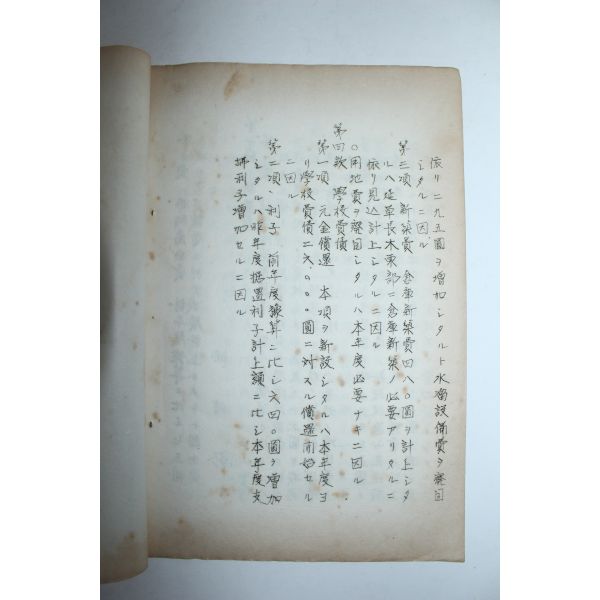 依リ二九五圓ヲ増加シタルト水道設備費ヲ廃目
シタルニ因ル
第三項 新築費 倉庫新築費四八〇圓ヲ計上シタ
ルハ延草長木東部ニ倉庫新築ノ必要アリタルニ
依リ見込計上シタルニ因ル
〇用地費ヲ廃目シタルハ本年度必要ナキニ因ル
第四款 學校費債
第一項 元金償還 本項ヲ新設シタルハ本年度ヨ
リ學校費債二六、〇〇〇圓ニ対スル償還開始セル
ニ因ル
第二項 利子 前年度豫算ニ比シ六四〇圓ヲ増加
シタルハ昨年度据置利子計上額ニ比シ本年度支
拂利子増加セルニ因ル